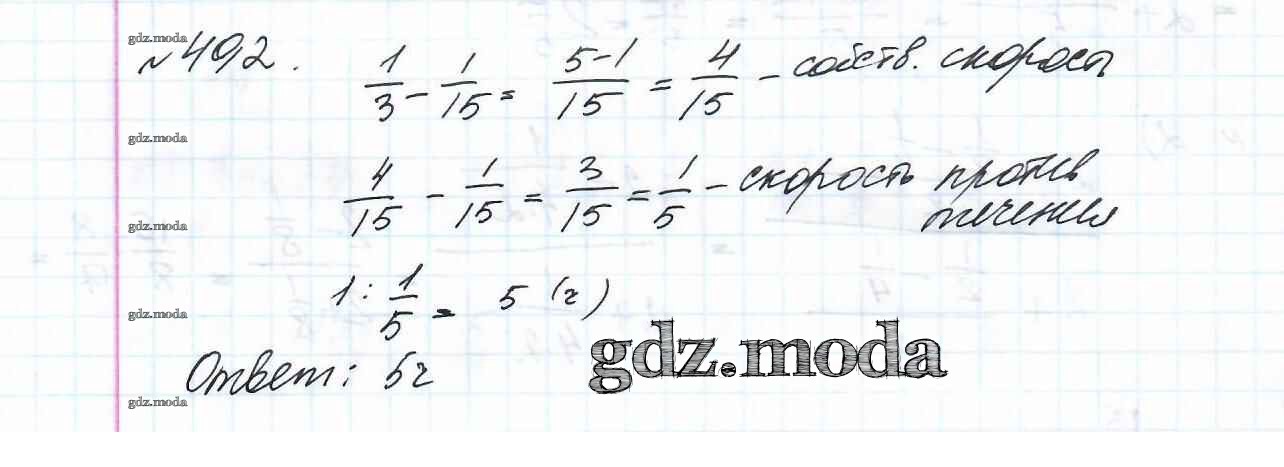 gdz.moda
№492.
1/3 - 1/15 = 5-1/15 = 4/15 - собств. скорость
gdz.moda
4/15 - 1/15 = 3/15 = 1/5 - скорость против
течения
gdz.moda
1 : 1/5 = 5 (ч)
gdz.moda
gdz.moda
Ответ: 5ч
gdz.moda